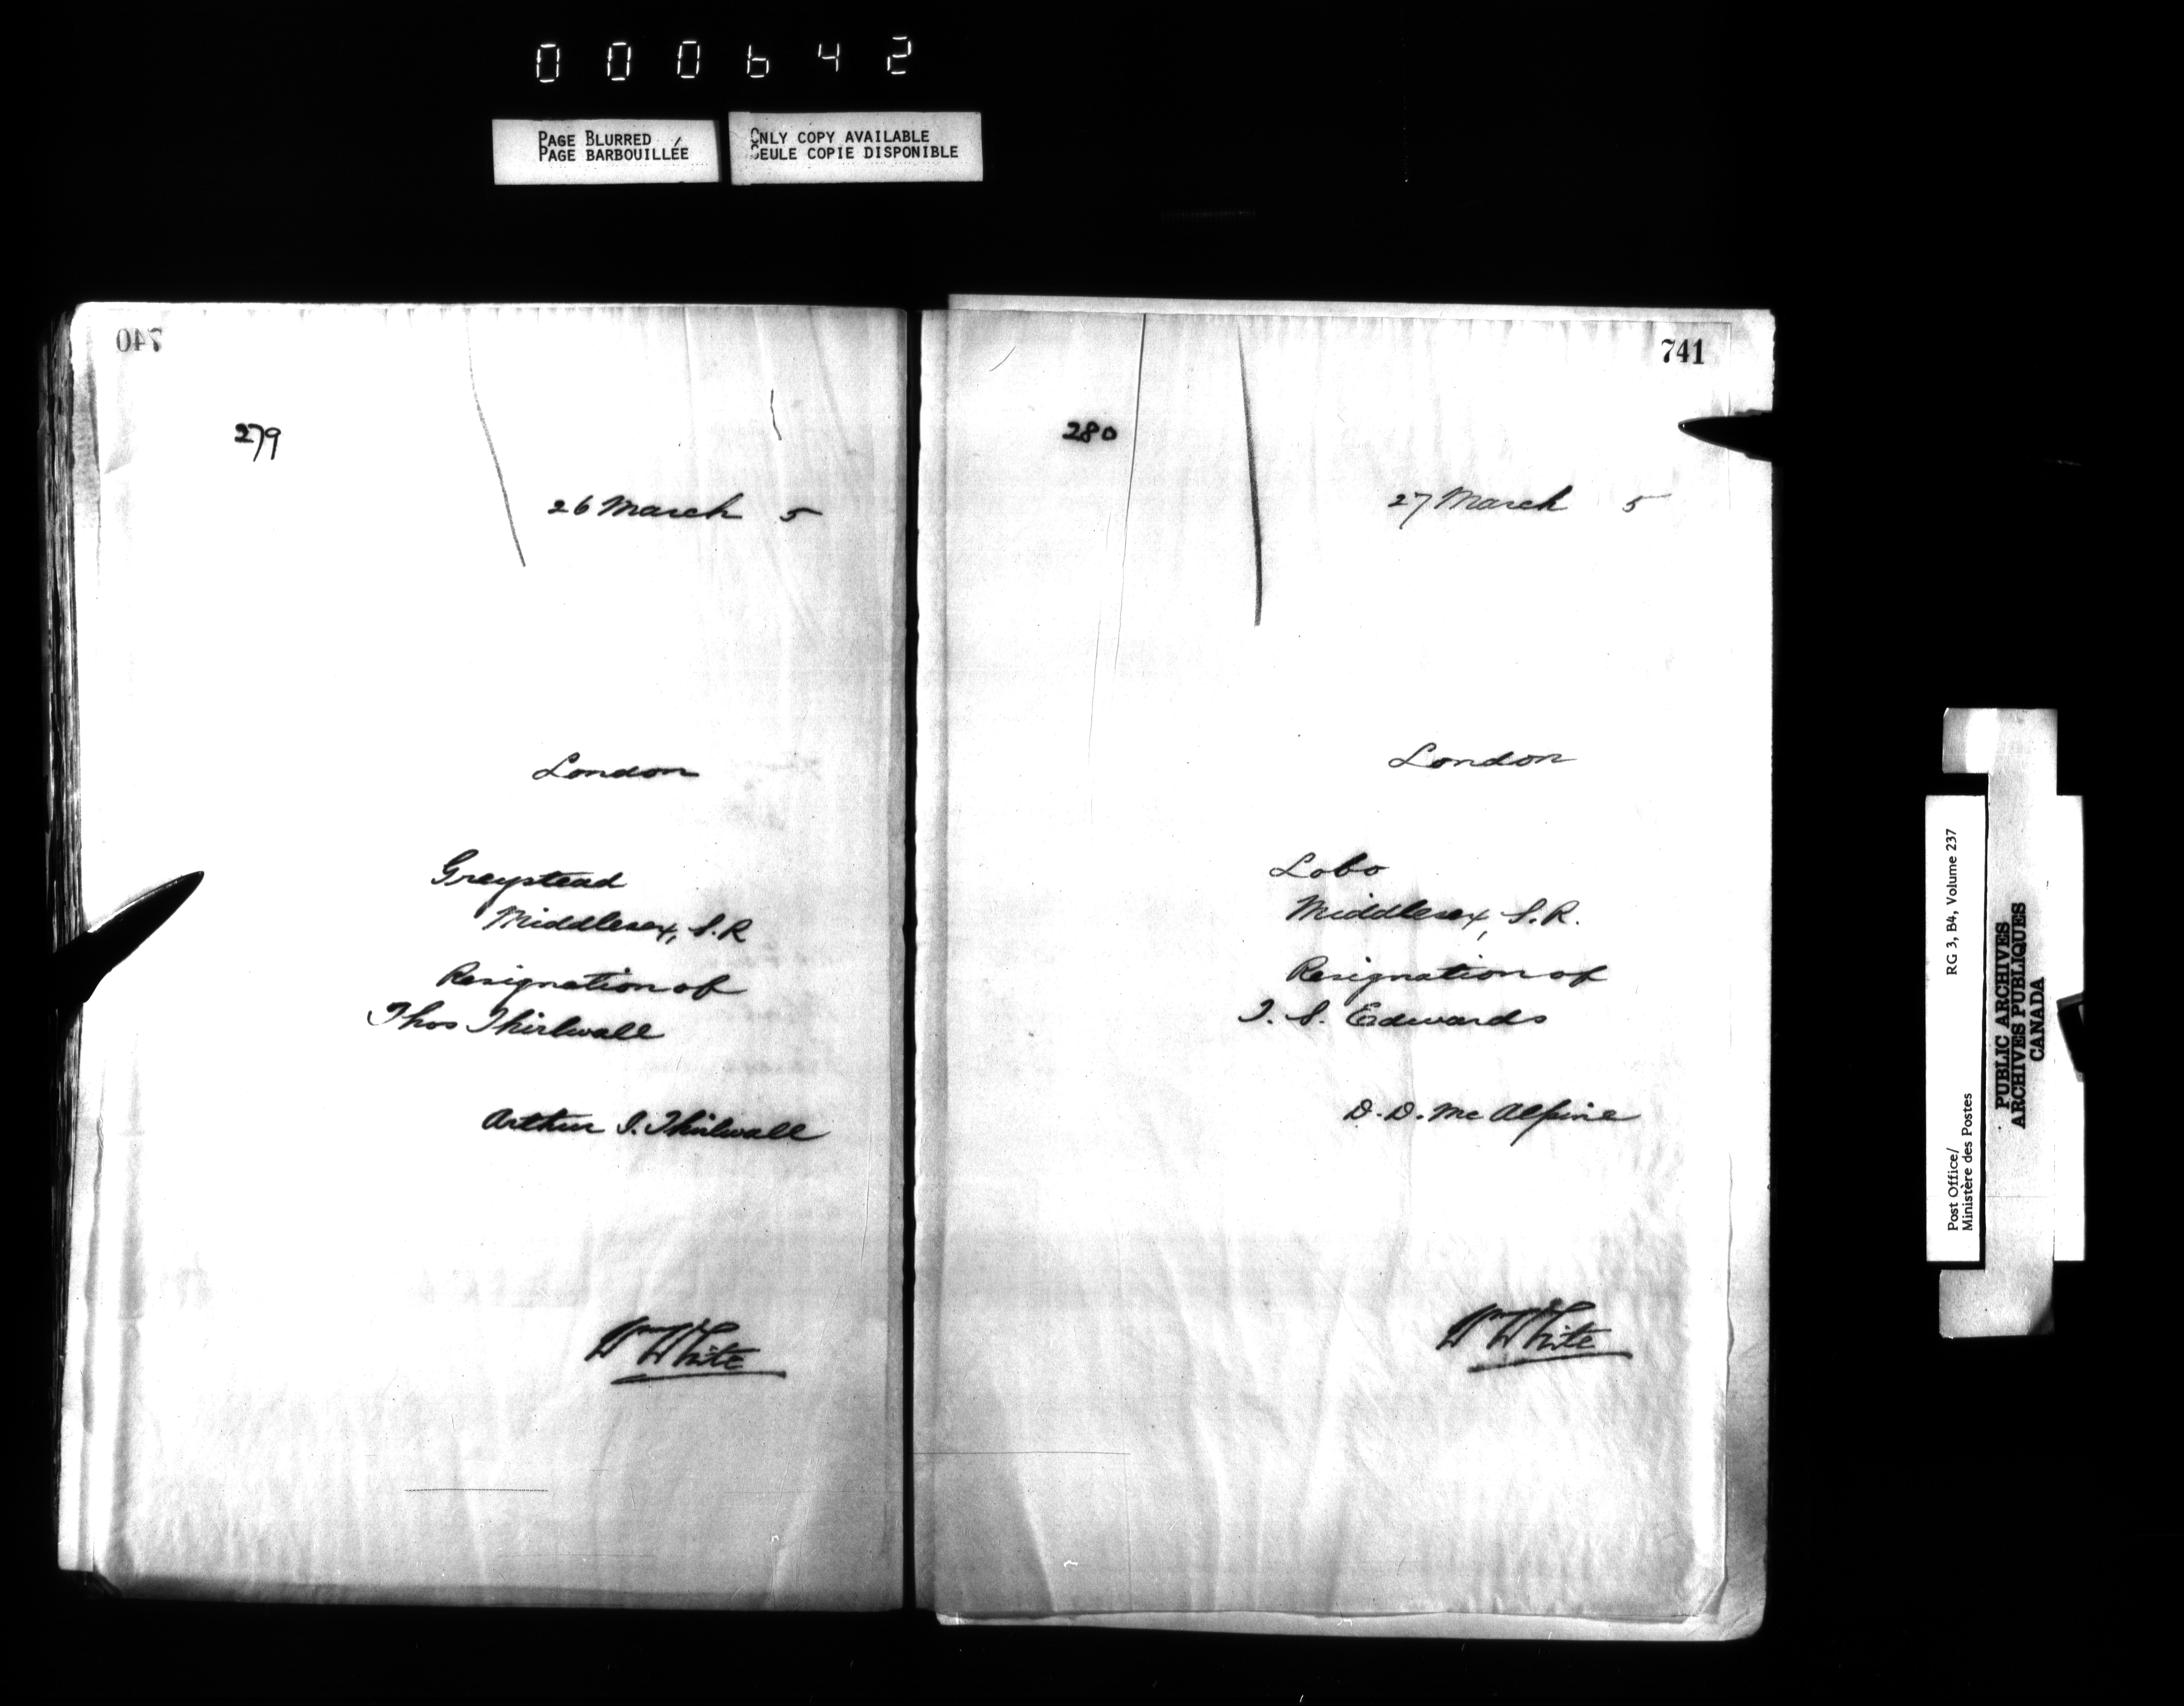 000642
PAGE BLURRED
PAGE BARBOUILLÉE
ONLY COPY AVAILABLE
SEULE COPIE DISPONIBLE
740
279
26 March 5
London
Greystead
Middlesex, S.R
Resignation of
Thos Thirlwall
Arthur I. Thirlwall
W White
741
280
27 March 5
London
Lobo
Middlesex, S.R.
Resignation of
T. S. Edwards
D. D. McAlpine
W White
Post Office/
Ministère des Postes
RG 3, B4, Volume 237
PUBLIC ARCHIVES
ARCHIVES PUBLIQUES
CANADA